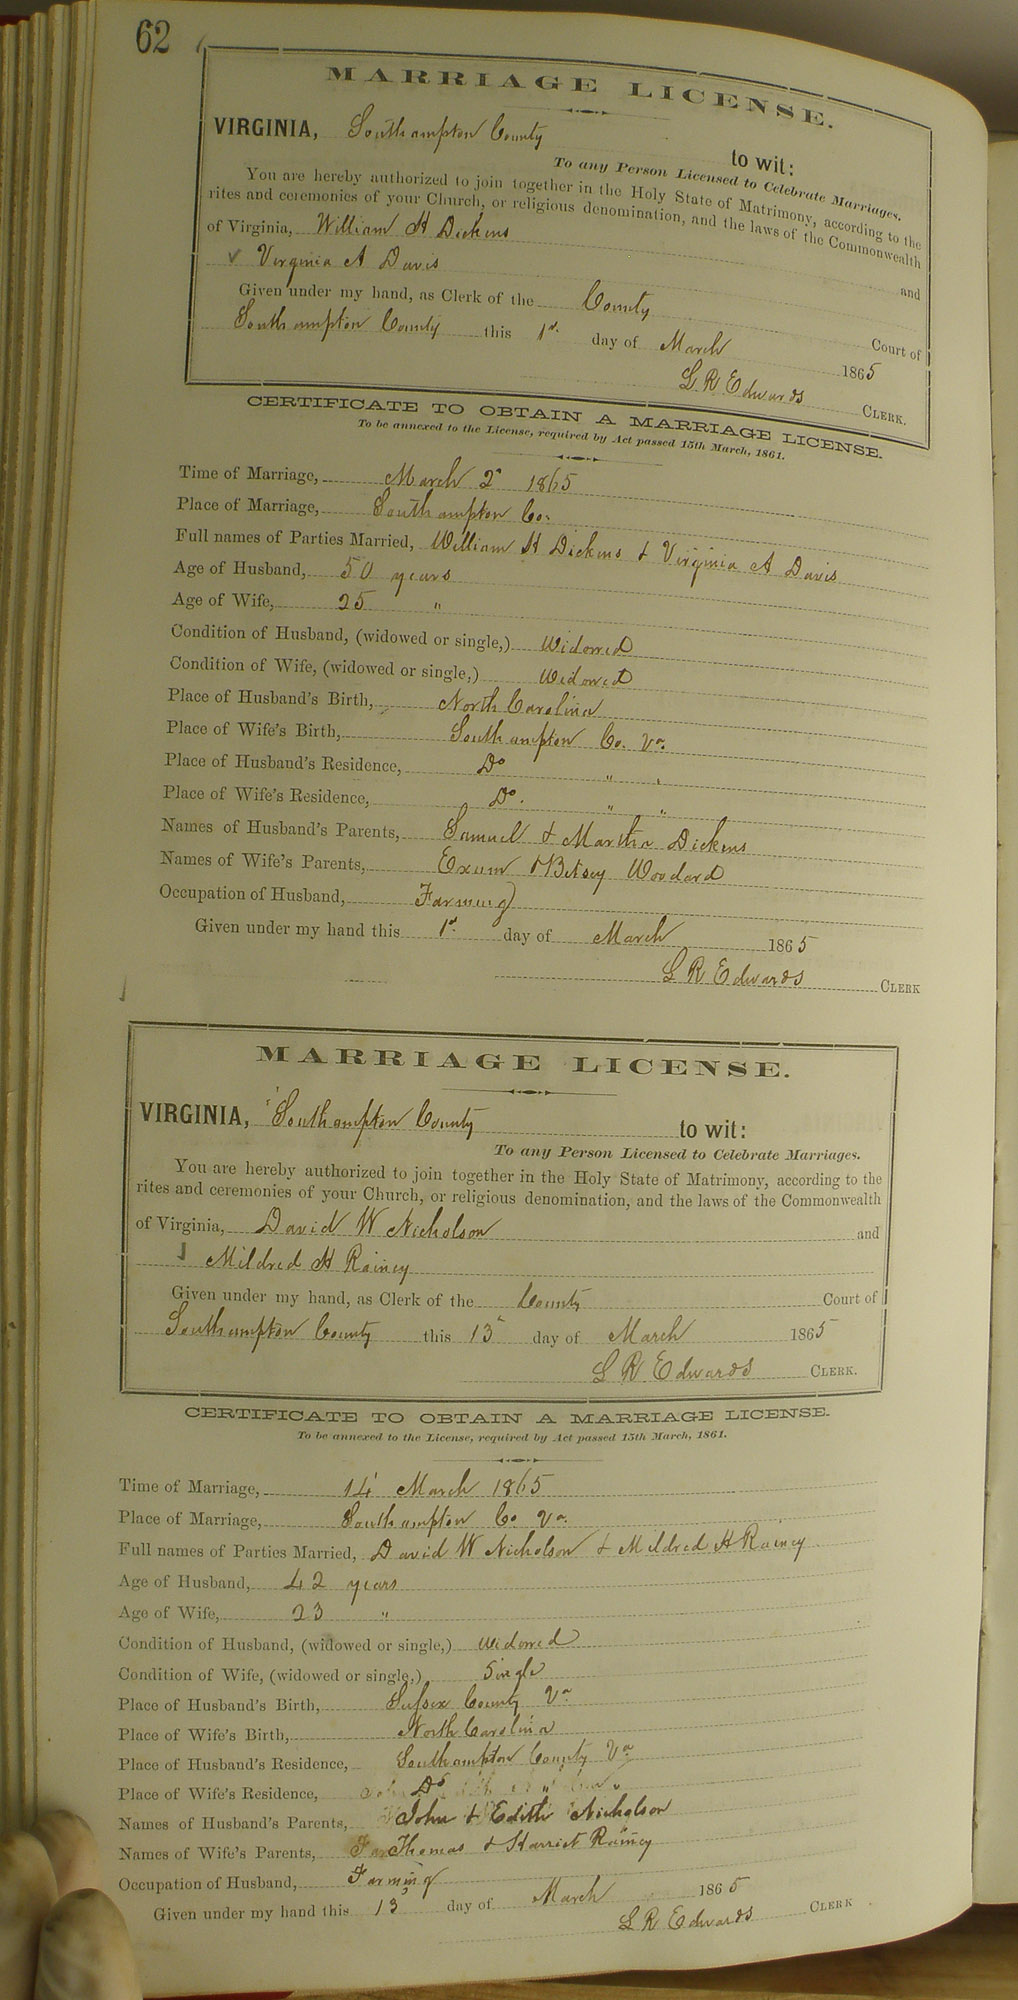 62
MARRIAGE LICENSE.
VIRGINIA, Southampton County to wit:
To any Person Licensed to Celebrate Marriages.
You are hereby authorized to join together in the Holy State of Matrimony, according to the
rites and ceremonies of your Church, or religious denomination, and the laws of the Commonwealth
of Virginia, William H Dickins and
Virginia A Davis
Given under my hand, as Clerk of the County Court of
Southampton County this 1st day of March 1865
L R Edwards CLERK.
CERTIFICATE TO OBTAIN A MARRIAGE LICENSE.
To be annexed to the License, required by Act passed 15th March, 1861.
Time of Marriage, March 2d 1865
Place of Marriage, Southampton Co.
Full names of Parties Married, William H Dickins & Virginia A Davis
Age of Husband, 50 years
Age of Wife, 25 "
Condition of Husband, (widowed or single,) Widowed
Condition of Wife, (widowed or single,) Widowed
Place of Husband's Birth, North Carolina
Place of Wife's Birth, Southampton Co. Va.
Place of Husband's Residence, Do " "
Place of Wife's Residence, Do. " "
Names of Husband's Parents, Samuel & Martha Dickens
Names of Wife's Parents, Exum & Betsey Woodard
Occupation of Husband, Farming
Given under my hand this 1st day of March 1865
L R Edwards CLERK
MARRIAGE LICENSE.
VIRGINIA, Southampton County to wit:
To any Person Licensed to Celebrate Marriages.
You are hereby authorized to join together in the Holy State of Matrimony, according to the
rites and ceremonies of your Church, or religious denomination, and the laws of the Commonwealth
of Virginia, David W Nicholson and
Mildred H Rainey
Given under my hand, as Clerk of the County Court of
Southampton County this 13 day of March 1865
L R Edwards CLERK.
CERTIFICATE TO OBTAIN A MARRIAGE LICENSE.
To be annexed to the License, required by Act passed 15th March, 1861.
Time of Marriage, 14 March 1865
Place of Marriage, Southampton Co Va.
Full names of Parties Married, David W Nicholson & Mildred H Rainey
Age of Husband, 42 years
Age of Wife, 23 "
Condition of Husband, (widowed or single,) Widowed
Condition of Wife, (widowed or single,) Single
Place of Husband's Birth, Sussex County Va
Place of Wife's Birth, North Carolina
Place of Husband's Residence, Southampton County Va
Place of Wife's Residence, Do " "
Names of Husband's Parents, John & Edith Nicholson
Names of Wife's Parents, Thomas & Harriet Rainey
Occupation of Husband, Farming
Given under my hand this 13 day of March 1865
L R Edwards CLERK